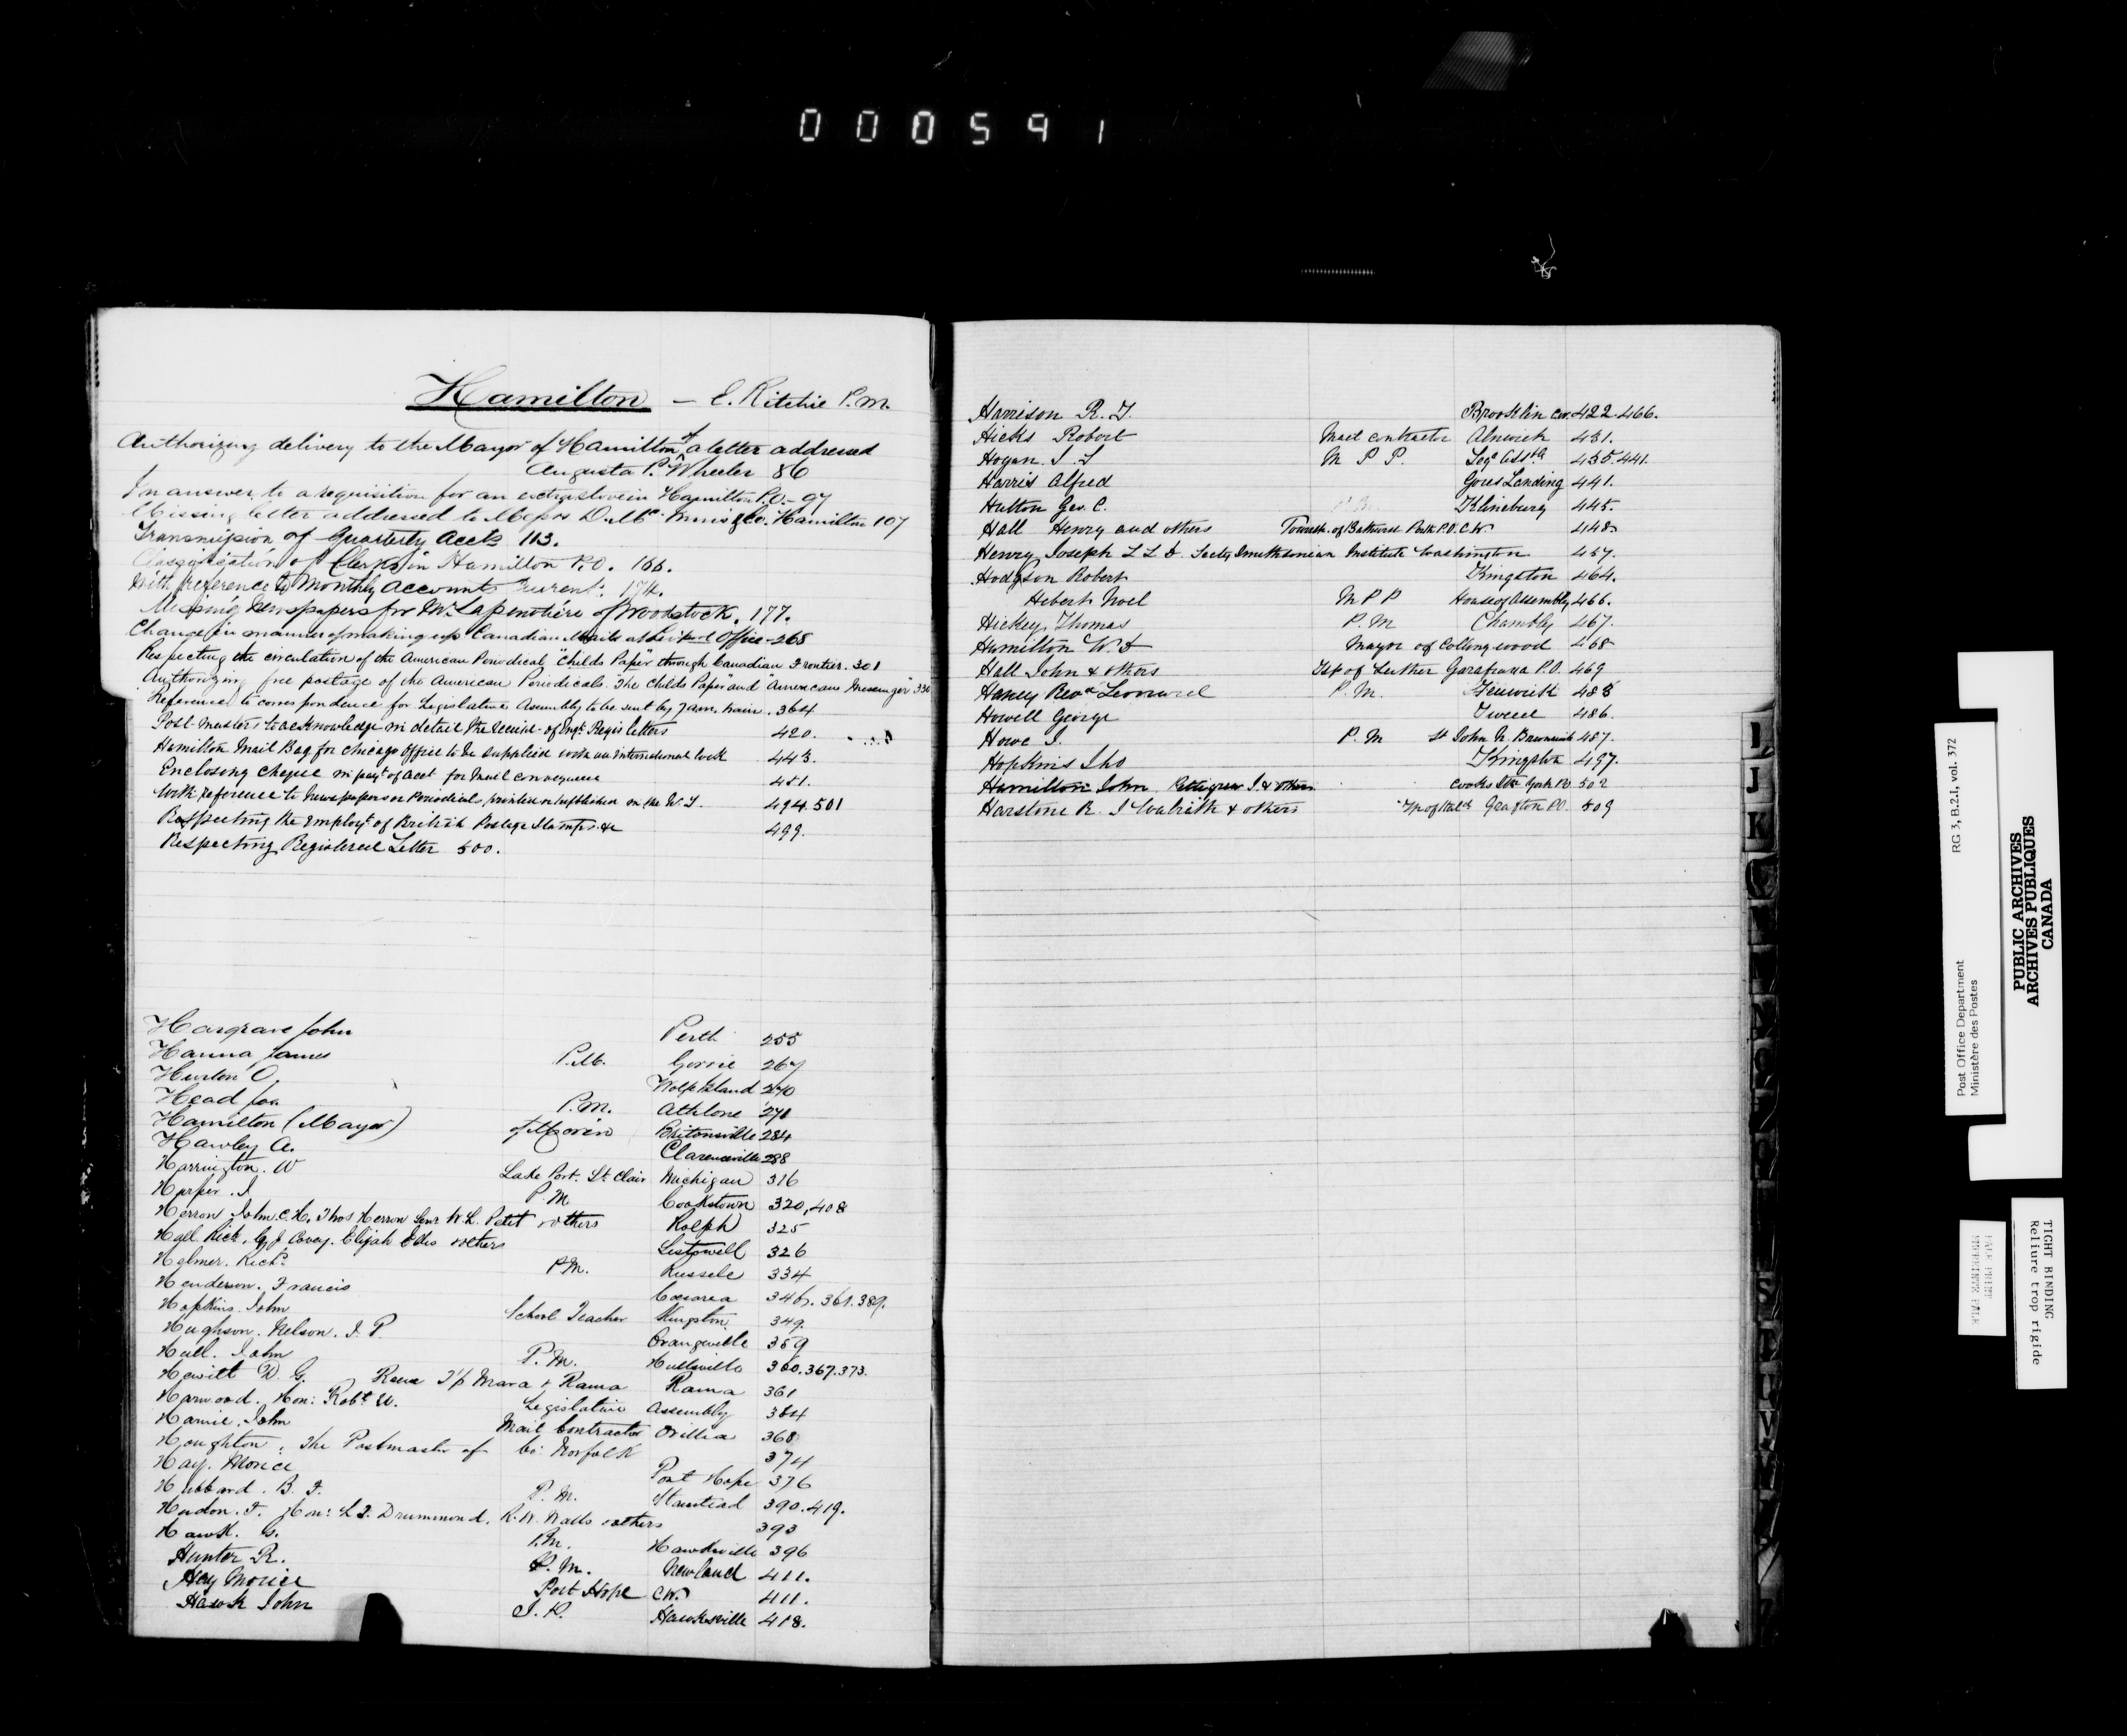 000591
Hamilton — E. Ritchie P.M.
Authorizing delivery to the Mayor of Hamilton of a letter addressed
Augusta P. Wheeler 86
In answer to a requisition for an extra stove in Hamilton P.O. - 97
Missing letter addressed to Messrs D. Mc Innis & Co. Hamilton 107
Transmission of Quarterly Accts 113.
Classification of Clerks in Hamilton P.O. 166.
With reference to Monthly Accounts Current. 174.
Missing Newspapers for Mr Lapenotière of Woodstock. 177.
Change in manner of making up Canadian Mails at Office - 268
Respecting the circulation of the American Periodical "Childs Paper" through Canadian Frontier. 301
Authorizing free postage of the American Periodicals "The Childs Paper" and "American Messenger" 330
Reference to correspondence for Legislative Assembly to be sent by 7 a.m. train. 364
Post Masters to acknowledge in detail the receipt of Regis letters 420.
Hamilton Mail Bag for Chicago Office to be supplied with an International lock 443.
Enclosing cheque in payt of acct for Mail conveyance 451.
With reference to Newspapers or Periodicals printed or published in the W. I. 494.501
Respecting the employt of British Postage Stamps &c 499.
Respecting Registered Letter 500.
Hargrave John Perth 255
Hanna James P.M. Gorrie 267
Hurlen O. Wolfe Island 270
Head Jos. P.M. Athlone 271
Hamilton (Mayor) of Morin Britonsville 284
Hawley A. Clarenceville 288
Harrington. W Lake Port. St. Clair Michigan 316
Harper. J P.M. Cookstown 320, 408
Herron John. C. H. Thos Herron Senr W. L. Petit & others Rolph 325
Hall. Rich. G J Covey. Elijah Ellis & others Listowell 326
Helmer. Richd. P.M. Russele 334
Henderson. Francis Cæsarea 346. 361. 389.
Hopkins. John School Teacher Kingston 349.
Hughson. Nelson. J. P. Orangeville 359
Hull. John P.M. Hullsville 360.367.373.
Hewitt D. G. Reeve T/p Mara & Rama Rama 361
Harwood. Hon: Robt U. Legislative Assembly 364
Harvie. John Mail Contractor Orillia 368
Houghton, The Postmaster of Co: Norfolk 374
Hay. Morice Port Hope 376
Hubbard. B. F. P.M. Stanstead 390.419.
Hudon. F. Hon: L T. Drummond. R. H. Watts & others 393
Hawk. G. P.M. Hawksville 396
Hunter R. P.M. Newland 411.
Hay Morice Port Hope C.W. 411.
Hawk John J.P. Hawksville 418.
Harrison R. T. Brooklin C.W. 422.466.
Hicks Robert Mail contractor Alnwick 431.
Hogan. J. S M P P. Legs Assbly 435.441.
Harris Alfred Gores Landing 441.
Hutton Geo. C. P.M. Klineburg 445.
Hall Henry and others Townsh. of Bathurst Perth P.O. C.W. 448
Henry Joseph L L D. Secty Smithsonian Institute Washington 457.
Hodgson Robert Kingston 464.
Hebert Noel M P P House of Assembly 466.
Hickey Thomas P.M Chambly 467.
Hamilton W. D Mayor of Collingwood 468
Hall John & others Tsp of Luther Garafraxa P.O. 469
Haney Revd Leonard P.M. Fenwick 485
Howell George Tweed 486.
Howe J. P.M St John N. Brunswick 487.
Hopkins Jho Kingston 497.
Hamilton John Pettigrew J. & others York Rd 502
Harstone R. J Walrath & others Grafton P.O. 509
I
J
K
PUBLIC ARCHIVES
ARCHIVES PUBLIQUES
CANADA
Post Office Department RG 3, B.2.I, vol. 372
Ministère des Postes
TIGHT BINDING
Reliure trop rigide